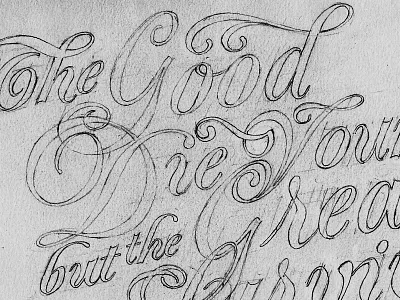 The Good
Die Youn
but the Grea